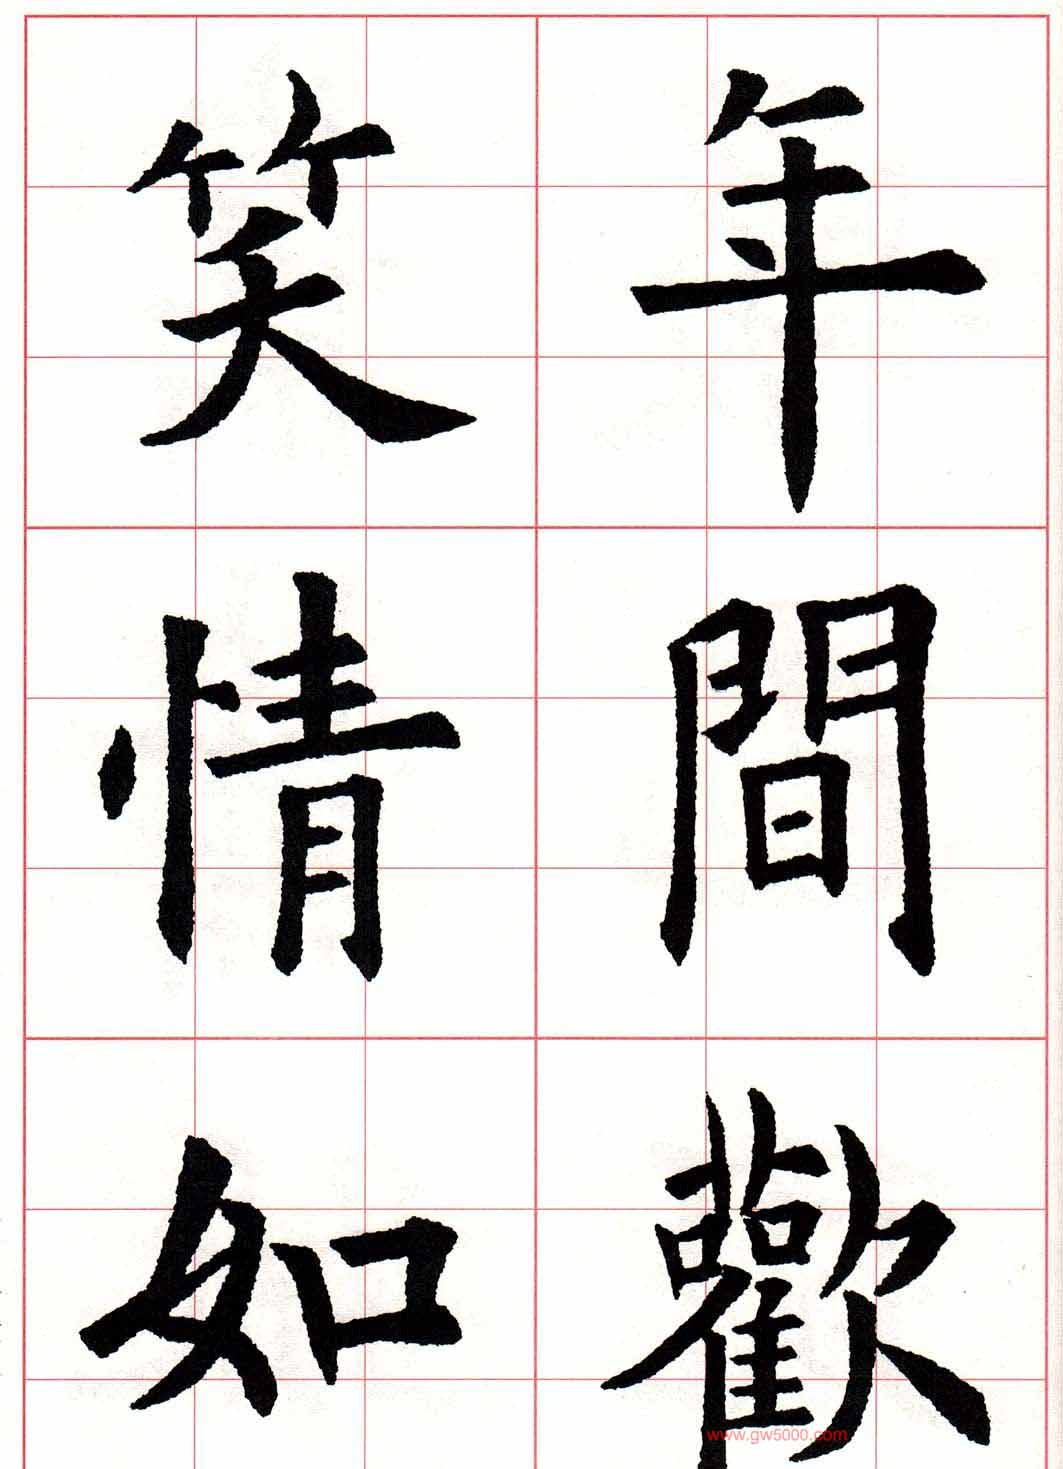 年間歡
笑情如
www.gw5000.com